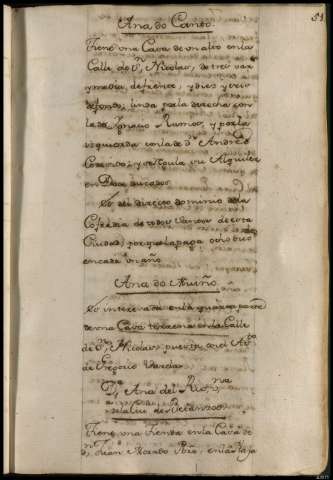 51
Ana do Canto
Tiene una Casa de un alto en la
Calle de Sn. Nicolas, de tres varas
y media, de frente, y diez y seis
de fondo, linda por la derecha con
la de Ignacio Ramos, y por la
izquierda con la de Dn. Andres
y regula su Alquiler
en Doce ducados
Es del directo dominio de la
Cofradia de todos Santos de esta
Ciudad, porque la paga ocho rs.
en cada un año
Ana do Muiño
Es interesada en la quarta parte
de una Casa terrena en la Calle
de Sn. Nicolas, puesta en el
de Gregorio Varela
Da. Ana del Rio,
de Betanzos
Tiene una Tienda en la Casa de
Dn. Juan Rio, en la